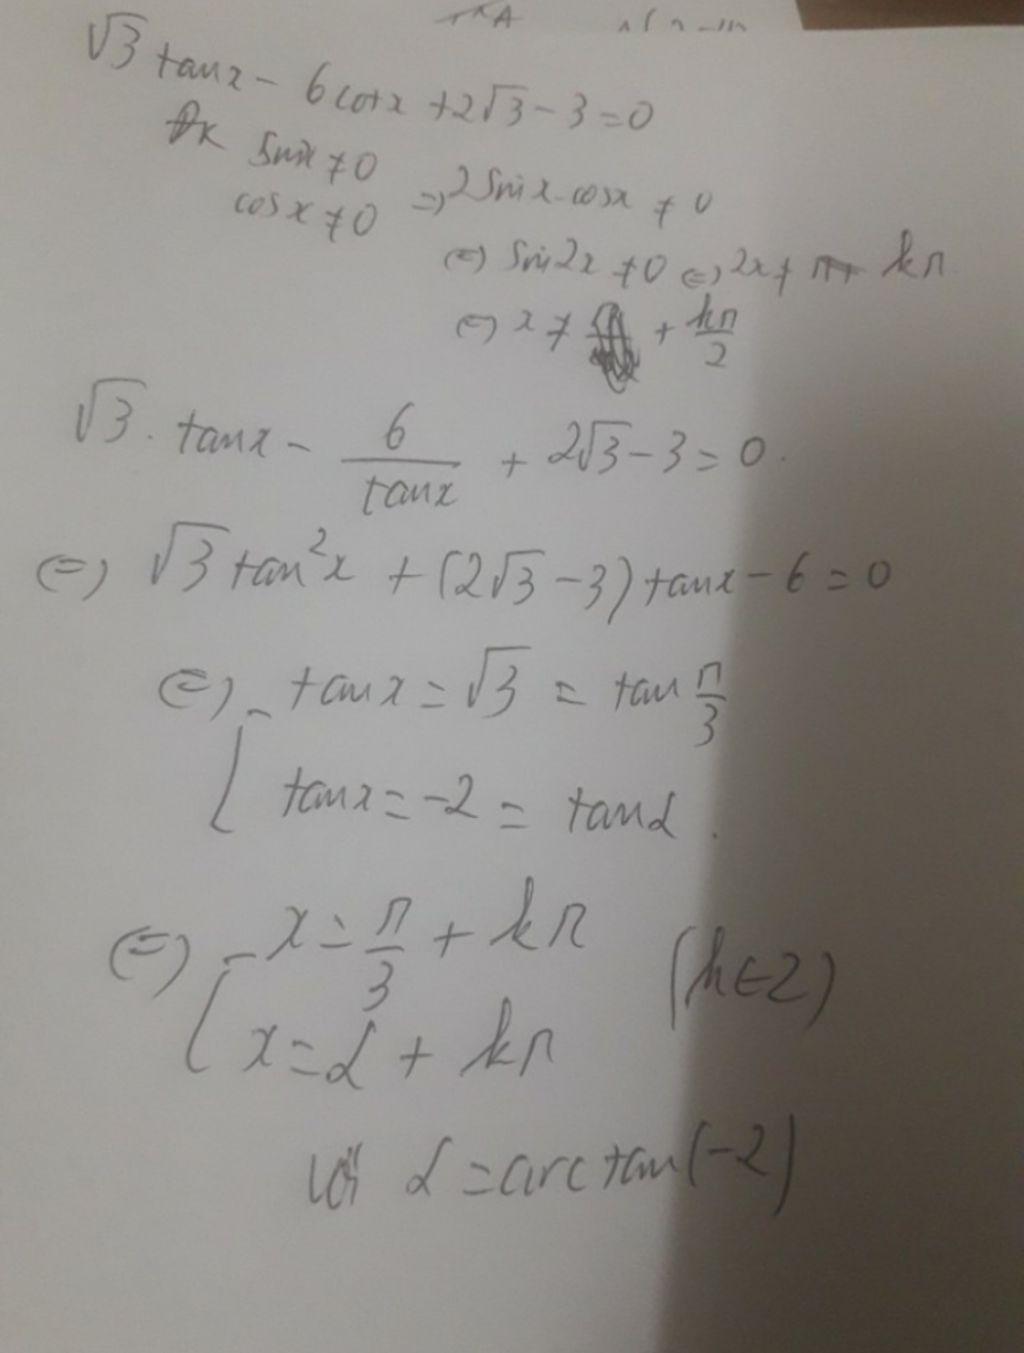 √3 tanx - 6cotx + 2√3 - 3 = 0
ĐK sinx ≠ 0
cosx ≠ 0 => 2sinx.cosx ≠ 0
<=> sin2x ≠ 0 <=> 2x ≠ kπ
<=> x ≠ + kπ/2
√3. tanx - 6/tanx + 2√3 - 3 = 0.
<=> √3 tan²x + (2√3 - 3)tanx - 6 = 0
<=> [ tanx = √3 = tan π/3
tanx = -2 = tanα.
<=> [ x = π/3 + kπ (k∈Z)
x = α + kπ
với α = arctan(-2)